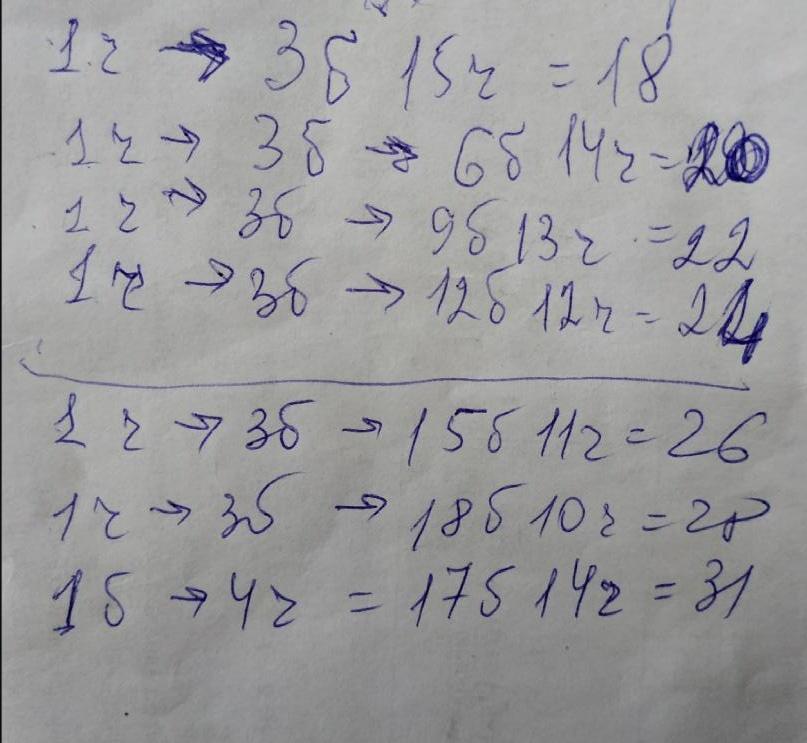 1ч → 3б 15ч = 18
1ч → 3б → 6б 14ч = 20
1ч → 3б → 9б 13ч = 22
1ч → 3б → 12б 12ч = 24
1ч → 3б → 15б 11ч = 26
1ч → 3б → 18б 10ч = 28
1б → 4ч = 17б 14ч = 31